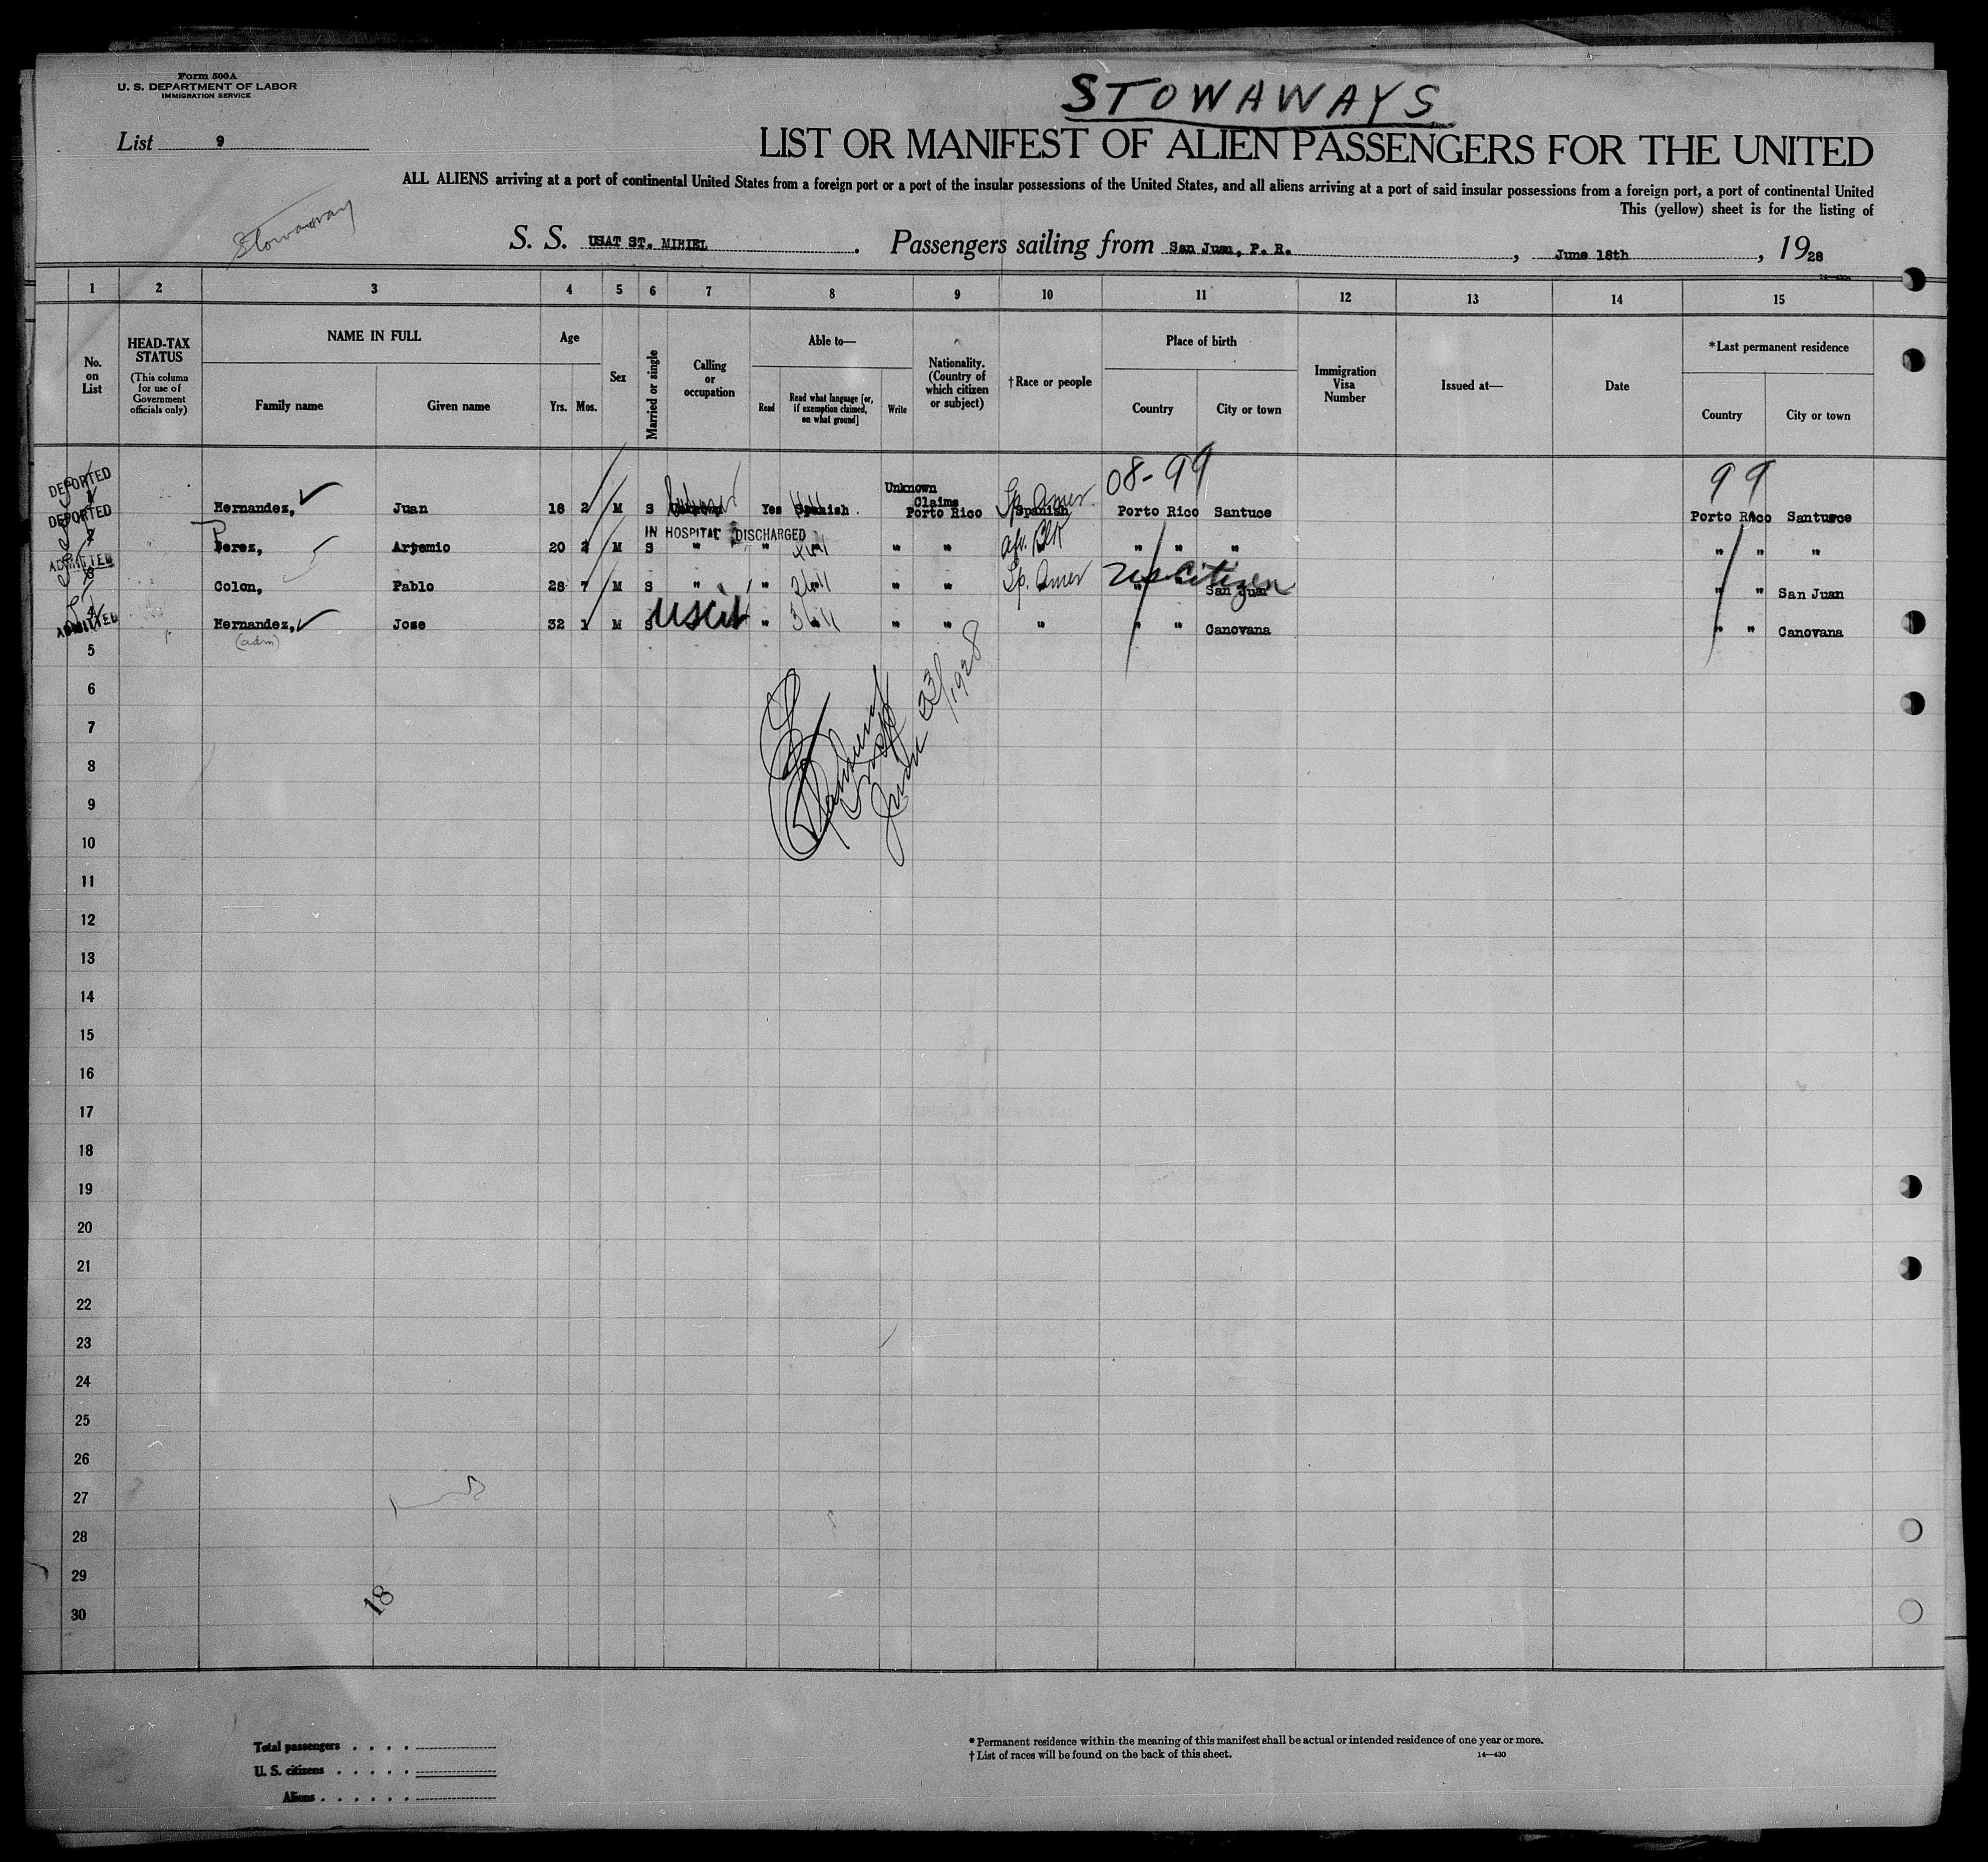 Form 500A
U. S. DEPARTMENT OF LABOR
IMMIGRATION SERVICE
STOWAWAYS
List 9
LIST OR MANIFEST OF ALIEN PASSENGERS FOR THE UNITED
ALL ALIENS arriving at a port of continental United States from a foreign port or a port of the insular possessions of the United States, and all aliens arriving at a port of said insular possessions from a foreign port, a port of continental United
This (yellow) sheet is for the listing of
Stowaway
S. S. USAT ST. MIHIEL. Passengers sailing from San Juan, P. R., June 18th, 1928
1 2 3 4 5 6 7 8 9 10 11 12 13 14 15
No. on List
HEAD-TAX STATUS
(This column for use of Government officials only)
NAME IN FULL
Family name Given name
Age
Yrs. Mos.
Sex
Married or single
Calling or occupation
Able to—
Read Read what language [or, if exemption claimed, on what ground] Write
Nationality. (Country of which citizen or subject)
†Race or people
Place of birth
Country City or town
Immigration Visa Number
Issued at—
Date
*Last permanent residence
Country City or town
08-99 99
DEPORTED 1 Hernandez, Juan 18 2 M S Yes Spanish Unknown Claims Porto Rico Spanish Sp. Amer Porto Rico Santuce Porto Rico Santurce
IN HOSPITAL DISCHARGED
DEPORTED 2 Perez, Artemio 20 M S " " " " " Afr. Blk " " " " " "
ADMITTED 3 Colon, Pablo 28 7 M S " " " " " Sp. Amer US Citizen " " San Juan " " San Juan
ADMITTED 4 Hernandez, Jose 32 1 M S US Cit " " " " " " " Canovana " " Canovana
(adm)
5
6
7
8
9
10
11
12
13
14
15
16
17
18
19
20
21
22
23
24
25
26
27
28
29
30
June 23/1928
18
Total passengers . . . .
U. S. citizens . . . . .
Aliens . . . . . .
* Permanent residence within the meaning of this manifest shall be actual or intended residence of one year or more.
† List of races will be found on the back of this sheet.
14—430